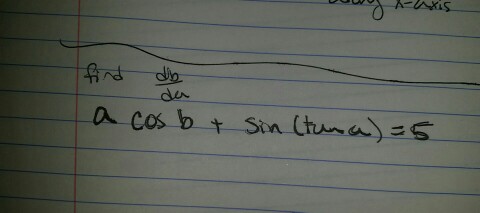 x-axis
find db/da
a cos b + sin(tan a) = 5